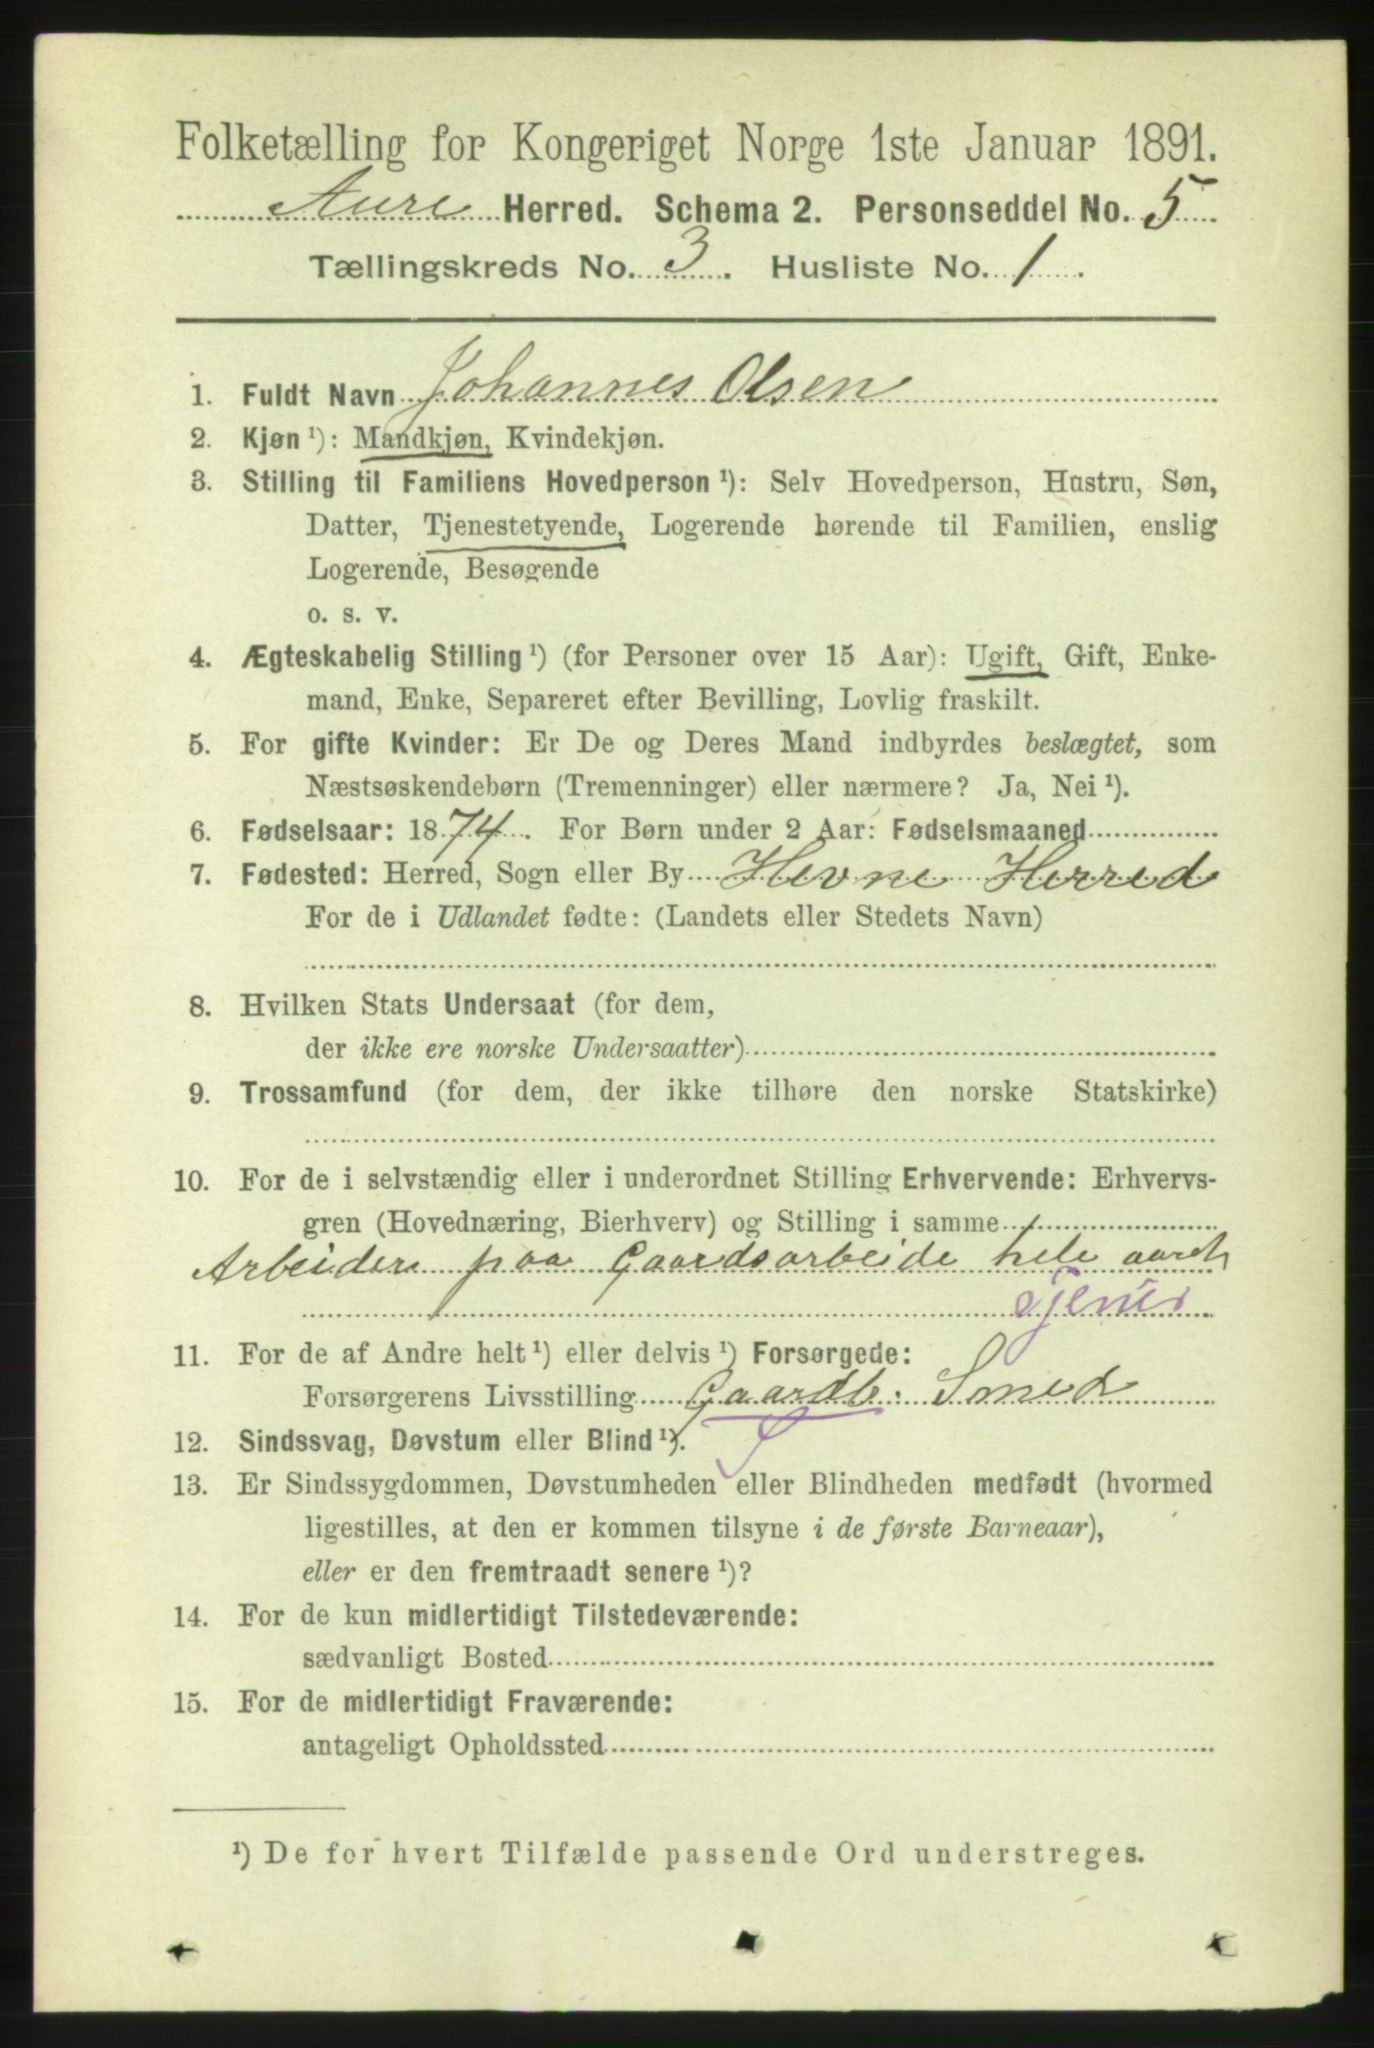 Folketælling for Kongeriget Norge 1ste Januar 1891.
Aure Herred. Schema 2. Personseddel No. 5
Tællingskreds No. 3. Husliste No. 1.
1. Fuldt Navn Johannes Olsen
2. Kjøn ¹): Mandkjøn, Kvindekjøn.
3. Stilling til Familiens Hovedperson ¹): Selv Hovedperson, Hustru, Søn,
Datter, Tjenestetyende, Logerende hørende til Familien, enslig
Logerende, Besøgende
o. s. v.
4. Ægteskabelig Stilling ¹) (for Personer over 15 Aar): Ugift, Gift, Enke-
mand, Enke, Separeret efter Bevilling, Lovlig fraskilt.
5. For gifte Kvinder: Er De og Deres Mand indbyrdes beslægtet, som
Næstsøskendebørn (Tremenninger) eller nærmere? Ja, Nei ¹).
6. Fødselsaar: 1874. For Børn under 2 Aar: Fødselsmaaned
7. Fødested: Herred, Sogn eller By Hevne Herred
For de i Udlandet fødte: (Landets eller Stedets Navn)
8. Hvilken Stats Undersaat (for dem,
der ikke ere norske Undersaatter)
9. Trossamfund (for dem, der ikke tilhøre den norske Statskirke)
10. For de i selvstændig eller i underordnet Stilling Erhvervende: Erhvervs-
gren (Hovednæring, Bierhverv) og Stilling i samme
Arbeider paa Gaardsarbeide hele aaret
11. For de af Andre helt ¹) eller delvis ¹) Forsørgede:
Forsørgerens Livsstilling Gaardb. Smed
12. Sindssvag, Døvstum eller Blind ¹).
13. Er Sindssygdommen, Døvstumheden eller Blindheden medfødt (hvormed
ligestilles, at den er kommen tilsyne i de første Barneaar),
eller er den fremtraadt senere ¹)?
14. For de kun midlertidigt Tilstedeværende:
sædvanligt Bosted
15. For de midlertidigt Fraværende:
antageligt Opholdssted
¹) De for hvert Tilfælde passende Ord understreges.